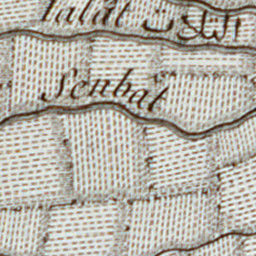 Talat التلات
Senbat